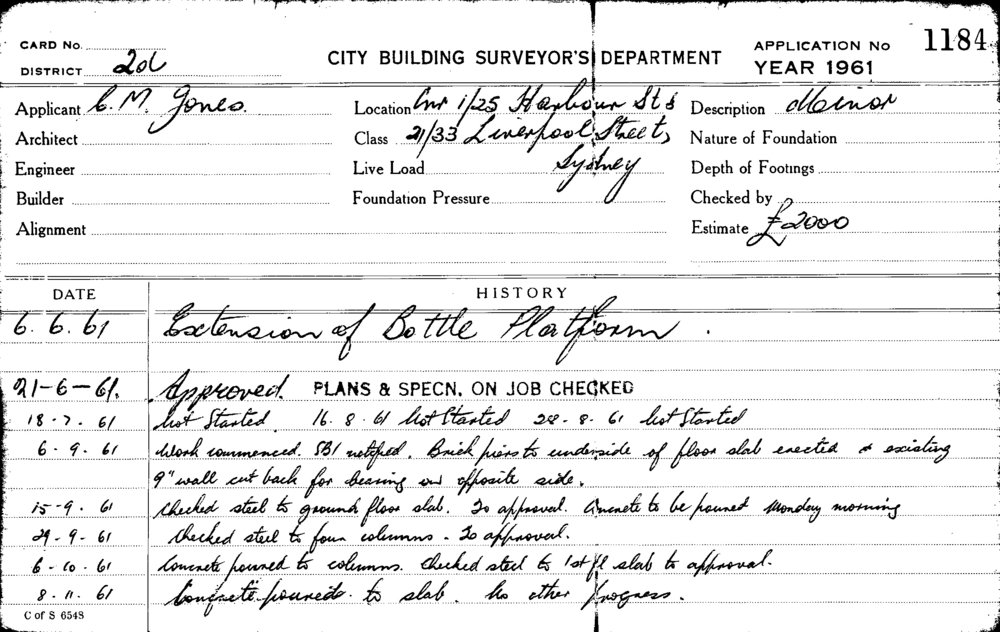 CARD No.
DISTRICT 2d
CITY BUILDING SURVEYOR'S DEPARTMENT
APPLICATION No 1184
YEAR 1961
Applicant C. M. Jones.
Location Cnr 1/25 Harbour St &
Description Minor
Architect
Class 21/33 Liverpool Street,
Nature of Foundation
Engineer
Live Load Sydney
Depth of Footings
Builder
Foundation Pressure
Checked by
Alignment
Estimate £2000
DATE HISTORY
6. 6. 61 Extension of Bottle Platform.
21-6-61. Approved. PLANS & SPECN. ON JOB CHECKED
18-7. 61 Not Started 16. 8. 61 Not Started 28. 8. 61 Not Started
6. 9. 61 Work commenced. SBI notified. Brick piers to underside of floor slab erected & existing
9" wall cut back for bearing on opposite side.
15-9. 61 Checked steel to ground floor slab. To approval. Concrete to be poured Monday morning
29-9-61 Checked steel to four columns - To approval.
6-10-61 Concrete poured to columns. Checked steel to 1st fl slab to approval.
8. 11. 61 Concrete poured to slab. No other progress.
C of S 6548